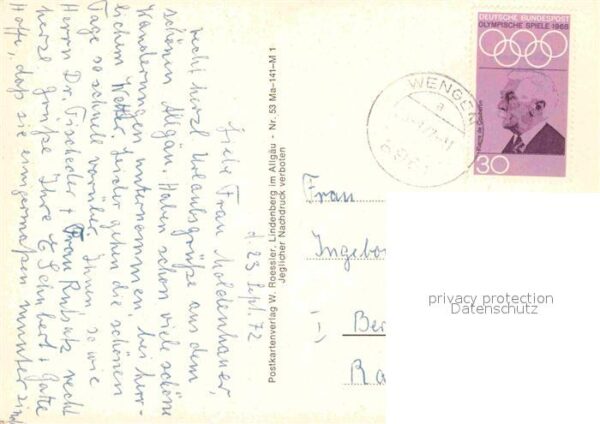 d. 23 Sept. 72
Liebe Frau Moldenhauer,
recht herzl. Urlaubsgrüße aus dem
schönen Allgäu. Haben schon viele schöne
Wanderungen unternommen, bei herr-
lichem Wetter. Leider gehen die schönen
Tage so schnell vorüber. Ihnen sowie
Herrn Dr. Tischeder + Frau Rubatz recht
herzl. Grüße Ihre E. Schubert + Gatte
Hoffe, daß sie einigermaßen munter sind
Postkartenverlag W. Roessler, Lindenberg im Allgäu - Nr. 53 Ma-141-M 1
Jeglicher Nachdruck verboten
WENGEN
a
DEUTSCHE BUNDESPOST
OLYMPISCHE SPIELE 1968
Pierre de Coubertin
30
Frau
Ingebo
Ber
Ra
privacy protection
Datenschutz